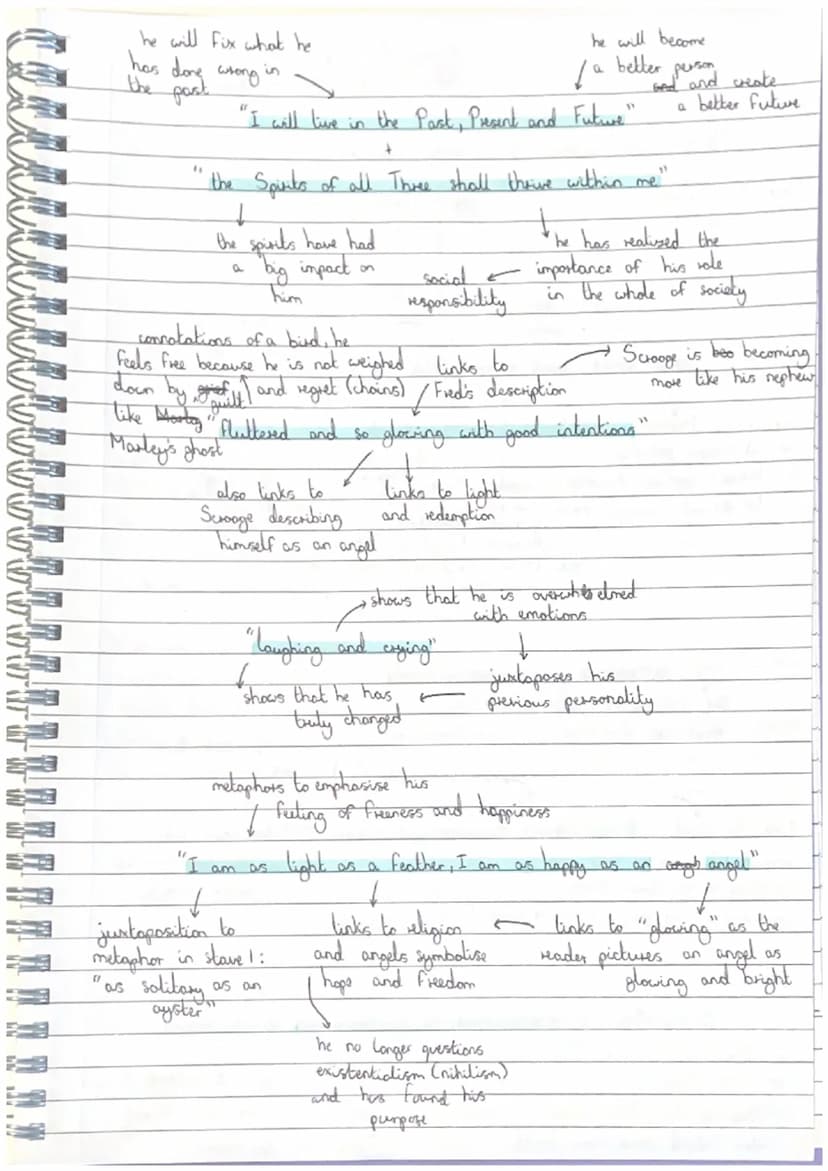 he will fix what he
has done wrong in
the past
he will become
a better person
and and create
a better future
"I will live in the Past, Present and Future"
+
"the Spirits of all Three shall thrive within me"
the spirits have had
a big impact on
him
he has realized the
importance of his role
in the whole of society
social
responsibility
connotations of a bird, he
feels free because he is not weighed
down by grief guilt and regret (chains)
like Marley
Marley's ghost
links to
Fred's description
Scrooge is becoming
more like his nephew
"fluttered and so glowing with good intentions"
also links to
Scrooge describing
himself as an angel
links to light
and redemption
shows that he is overwhelmed
with emotions
"laughing and crying"
juxtaposes his
previous personality
shows that he has
truly changed
metaphors to emphasise his
feeling of freeness and happiness
"I am as light as a feather, I am as happy as an angel"
juxtaposition to
metaphor in stave 1:
"as solitary as an
oyster"
links to religion
and angels symbolise
hope and freedom
links to "glowing" as the
reader pictures an angel as
glowing and bright
he no longer questions
existentialism (nihilism)
and has found his
purpose